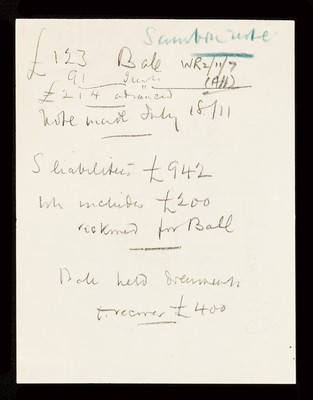 Sambon note
£123 Bale WR2/11/7
91 June (AH)
£214 advanced
Note made July 18/11
S liabilities £942
wh includes £200
reckoned for Ball
Bale held documents
to recover £400